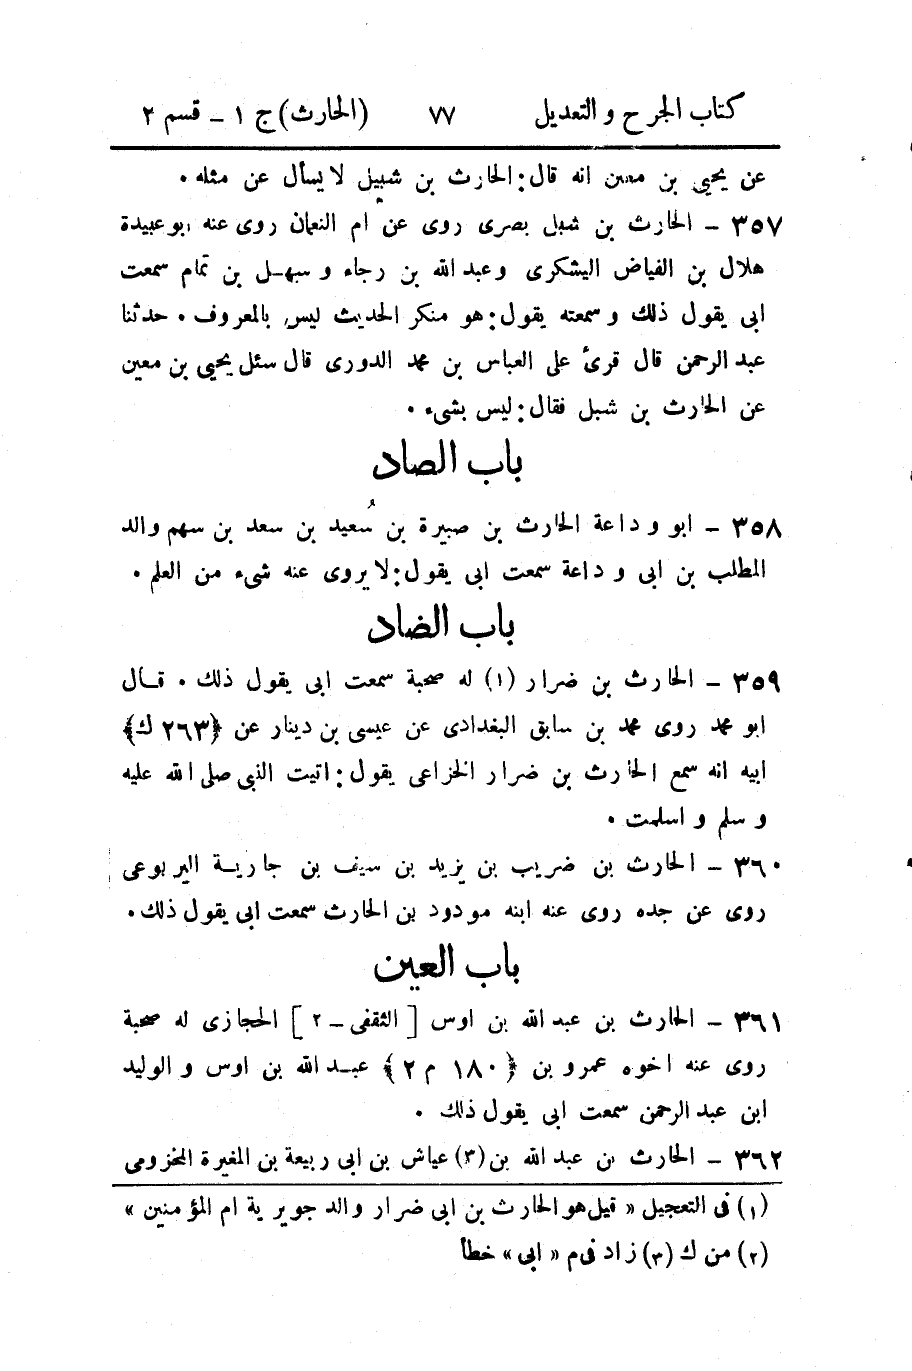 كتاب الجرح والتعديل ٧٧ (الحارث) ج ١ - قسم ٢
عن يحيى بن معين انه قال: الحارث بن شبيل لا يسأل عن مثله .
٣٥٧ - الحارث بن شبل بصرى روى عن ام النعمان روى عنه ابو عبيدة
هلال بن الفياض اليشكرى وعبد الله بن رجاء و سهل بن تمام سمعت
ابى يقول ذلك و سمعته يقول: هو منكر الحديث ليس بالمعروف . حدثنا
عبد الرحمن قال قرئ على العباس بن محمد الدورى قال سئل يحيى بن معين
عن الحارث بن شبل فقال: ليس بشىء .
باب الصاد
٣٥٨ - ابو وداعة الحارث بن صبيرة بن سُعيد بن سعد بن سهم والد
المطلب بن ابى وداعة سمعت ابى يقول: لا يروى عنه شىء من العلم .
باب الضاد
٣٥٩ - الحارث بن ضرار (١) له صحبة سمعت ابى يقول ذلك . قال
ابو محمد روى محمد بن سابق البغدادى عن عيسى بن دينار عن ﴿٢٦٣ ك﴾
ابيه انه سمع الحارث بن ضرار الخزاعى يقول: اتيت النبى صلى الله عليه
و سلم و اسلمت .
٣٦٠ - الحارث بن ضريب بن يزيد بن سيف بن جارية اليربوعى
روى عن جده روى عنه ابنه مودود بن الحارث سمعت ابى يقول ذلك .
باب العين
٣٦١ - الحارث بن عبد الله بن اوس [ الثقفى - ٢ ] الحجازى له صحبة
روى عنه اخوه عمرو بن ﴿١٨٠ م ٢﴾ عبد الله بن اوس و الوليد
ابن عبد الرحمن سمعت ابى يقول ذلك .
٣٦٢ - الحارث بن عبد الله بن (٣) عياش بن ابى ربيعة بن المغيرة المخزومى
(١) فى التعجيل « قيل هو الحارث بن ابى ضرار والد جويرية ام المؤمنين »
(٢) من ك (٣) زاد فى م « ابى » خطأ